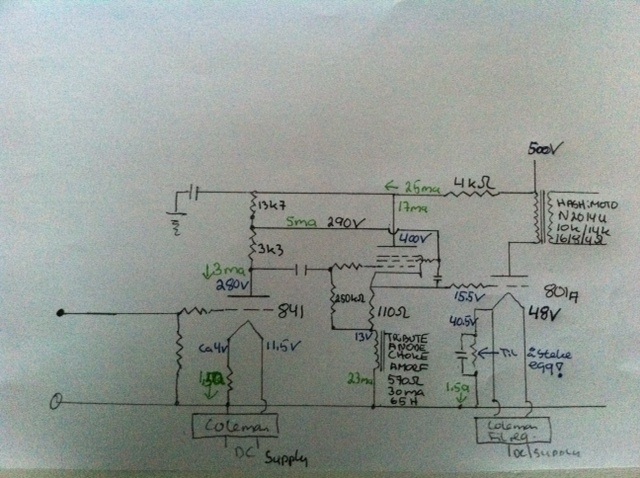 500V
← 25ma
4kΩ
17ma
13k7
HASHIMOTO
N2014U
10k/14k
16/8/4Ω
5ma 290V
400V
3k3
↓3ma
280V
801A
250kΩ
110Ω
15.5V
841
48V
40.5V
13V
ca 4v
11.5V
TRIBUTE
ANODE
CHOKE
AMORF
570Ω
30ma
65H
23ma
1.5a
Coleman
DC Supply
Coleman
Fil reg.
DC supply